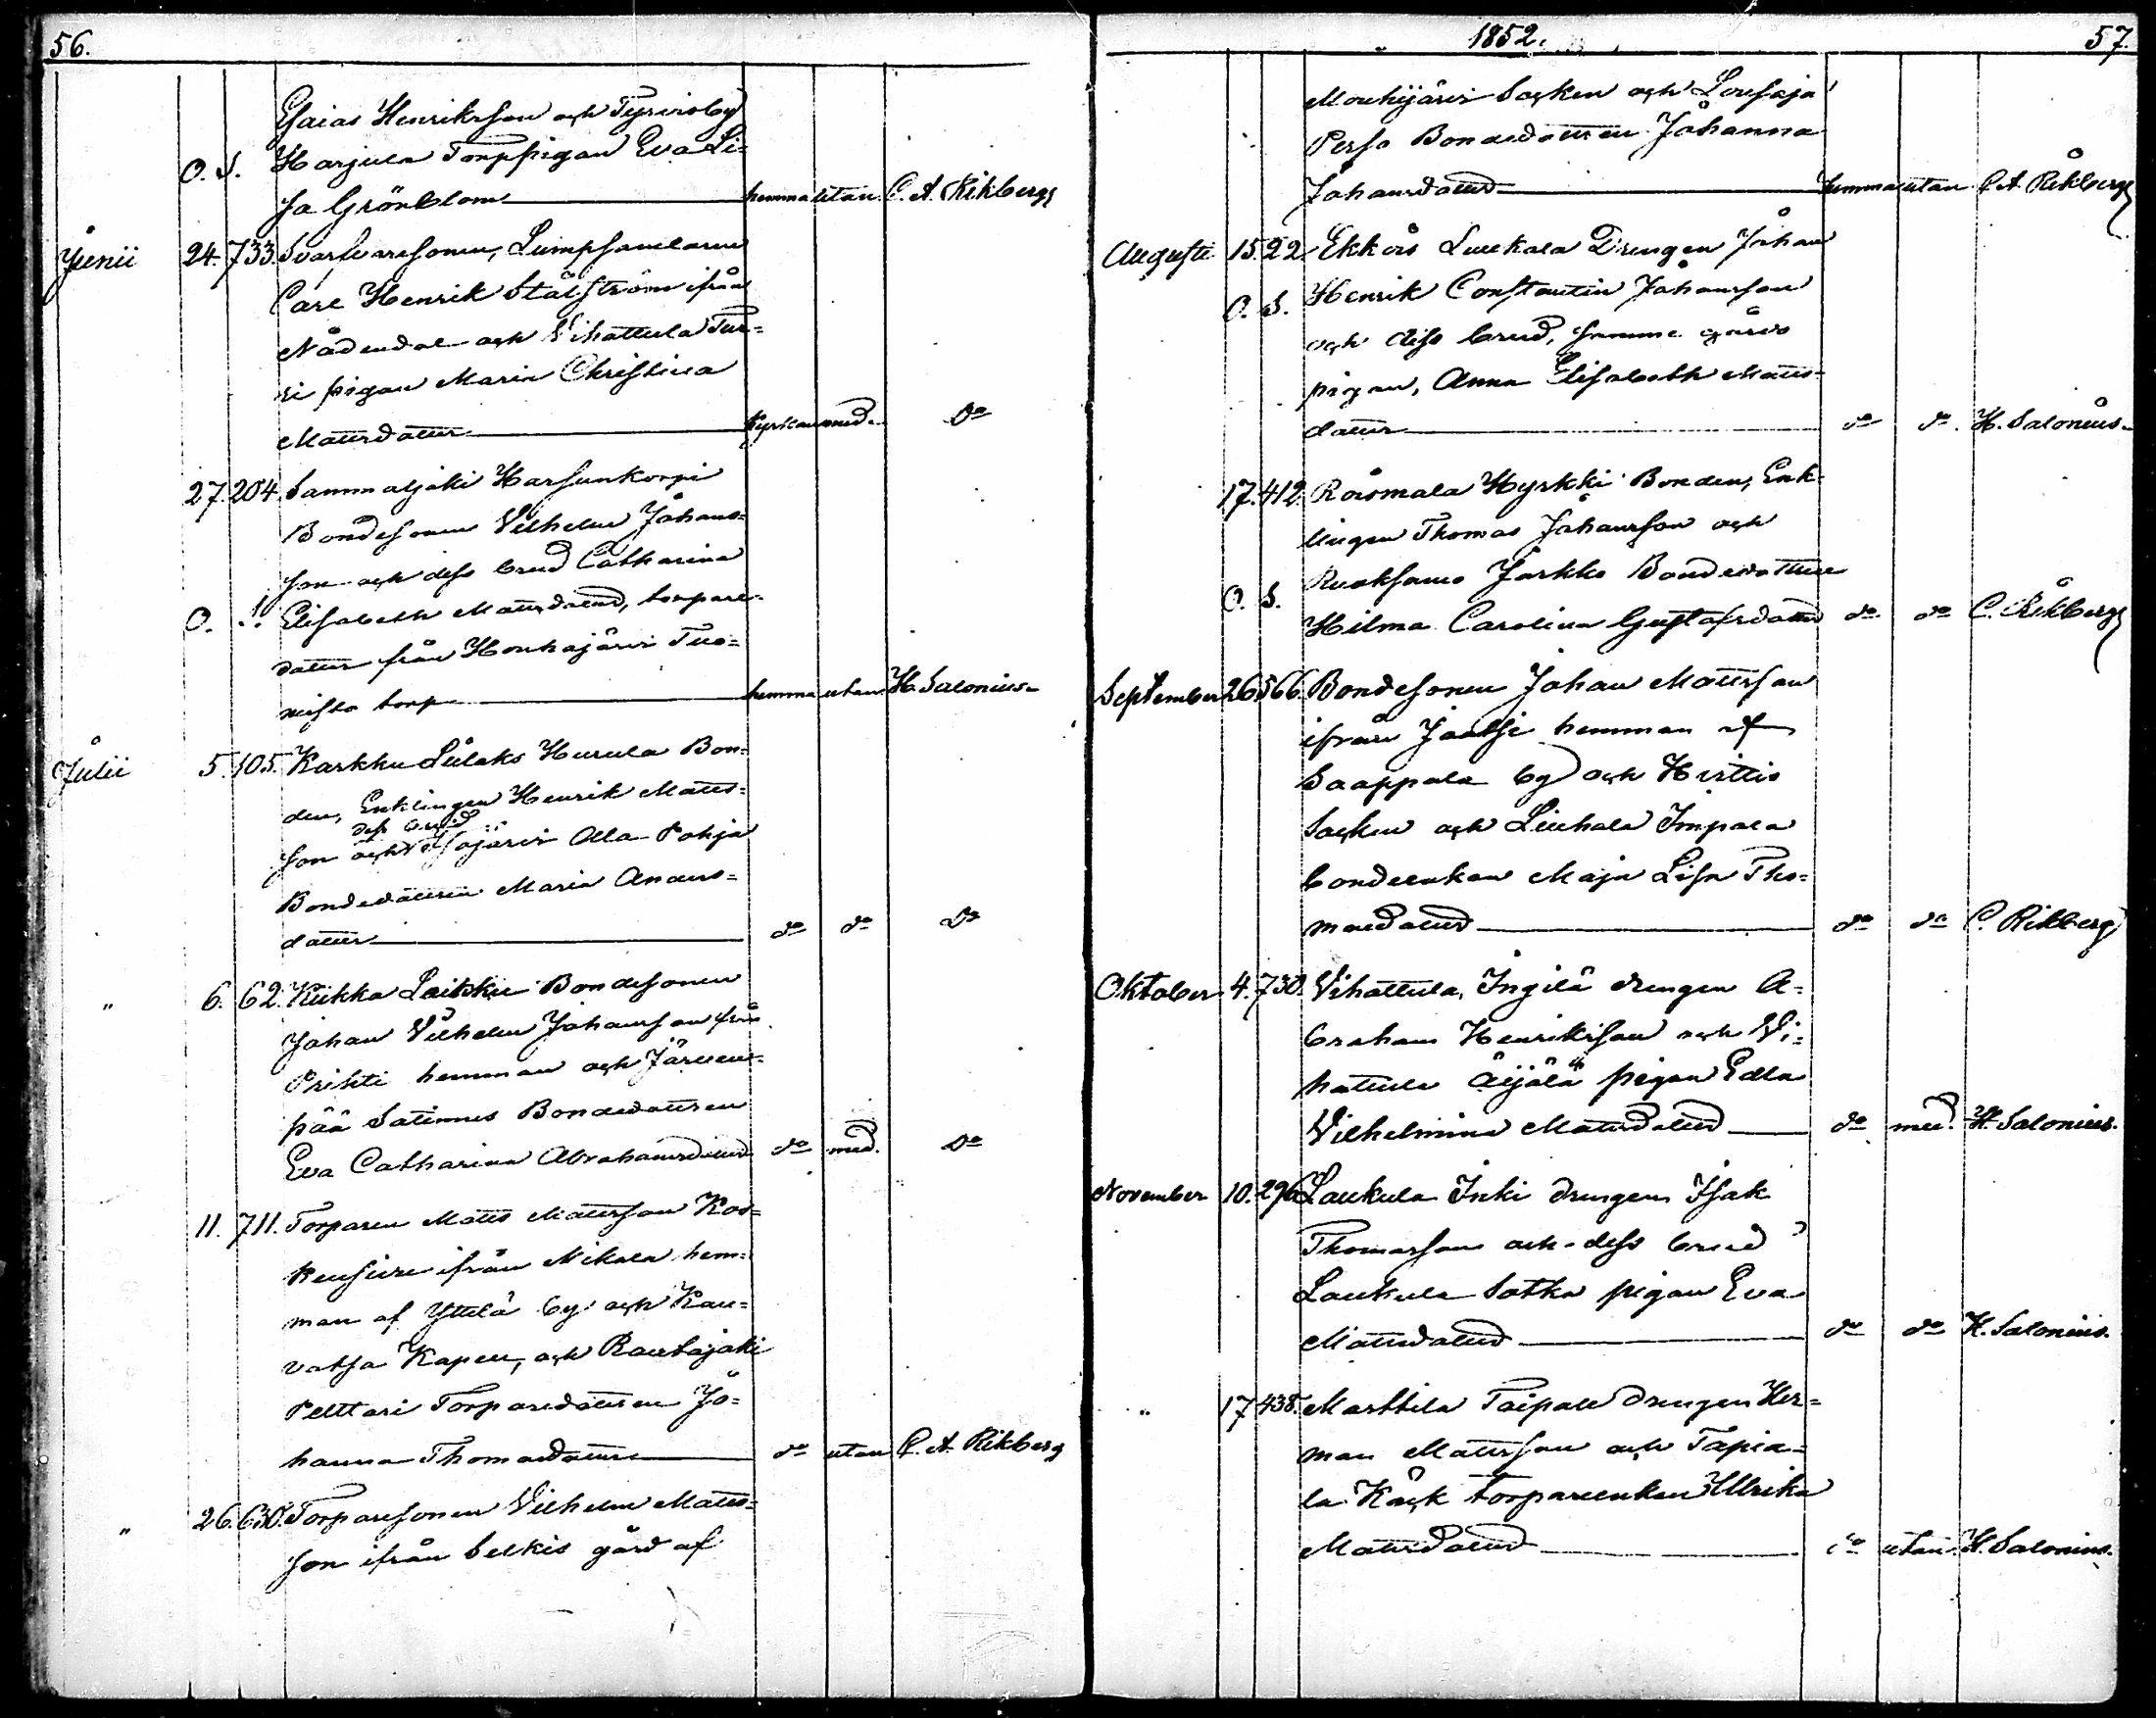 56.
Esaias Henriksson och Tyrvisby
O. S. Harjula Torppigan Eva Li=
sa Grönblom hemma utan C. A. Rikberg
Junii 24. 733. Svarfvaresonen, Lumpsamlaren
Carl Henrik Stålström ifrån
Nådendal och Vihattula Tur=
ri pigan Maria Christina
Mattsdotter kyrkan med. Do
27. 204. Sammaljoki Harsunkorpi
Bondesonen Vilhelm Johans=
son och dess brud Catharina
O. S. Elisabeth Mattsdotter, torpare=
dotter från Houhajärvi Tuo=
misto torp hemma utan H. Salonius
Julii 5. 105. Karkku Lielaks Hurula Bon=
den, Enklingen Henrik Matts=
dess brud
son och Esajärvi Alla Pohja
Bondedottren Maria Anders=
dotter do do Do
" 6. 62. Kiikka Laikku Bondesonen
Johan Vilhelm Johansson från
Prihti hemman och Järven=
pää Satimus Bondedottren
Eva Catharina Abrahamsdotter do med. Do
11. 711. Torparen Matts Mattsson Kos=
kensuu ifrån Mikola hem=
man af Yttilä by och Kau=
vatsa Kapell, och Rautajoki
Pelttari Torparedottren Jo=
hanna Thomasdotter do utan C. A. Rikberg
" 26. 630. Torparesonen Vilhelm Matts=
son ifrån Selkis gård af
1852. 57.
Mouhijärvi Socken och Lousaja
Perho Bondedottren Johanna
Johansdotter hemma utan C. A. Rikberg
Augusti 15. 22. Ekkois Luukala Drengen Johan
O. S. Henrik Constantin Johansson
och dess brud, samme gårds
pigan, Anna Elisabeth Matts=
dotter do do H. Salonius
17. 412. Roismala Hyrkki Bonden, Enk=
lingen Thomas Johansson och
O. S. Ruoksamo Jarkko Bondedottren
Hilma Carolina Gustafsdotter do do C. Rikberg
September 26. 566. Bondesonen Johan Mattsson
ifrån Jaatsi hemman af
Saappala by och Hvittis
Socken och Liuhala Impola
bondeenkan Maja Lisa Tho=
masdotter do do C. Rikberg
Oktober 4. 730. Vihattula, Ingilä drengen A=
braham Henriksson och Vi=
hattula Äijälä pigan Edla
Vilhelmina Mattsdotter do med. H. Salonius.
November 10. 296. Laukula Inki drengen Isak
Thomasson och dess brud
Laukula Sotka pigan Eva
Mattsdotter do do H. Salonius.
" 17. 438. Marttila Taipale drengen Her=
man Mattsson och Tapia=
la Käck torpareenkan Ulrika
Mattsdotter do utan H. Salonius.